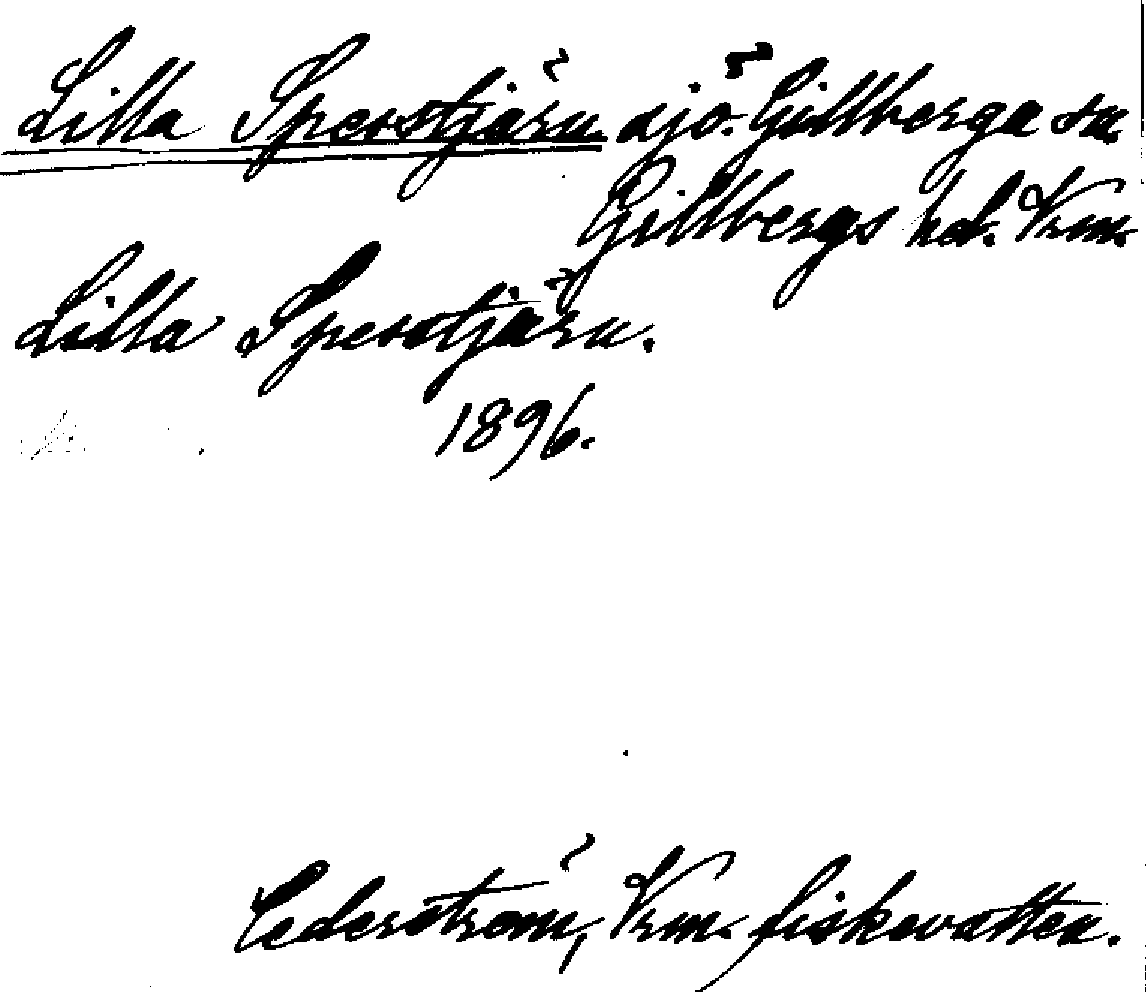 Lilla Sperstjärn. sjö. Gillberga sn.
Gillbergs hd. Vrm.
Lilla Sperstjärn.
1896.
Cederström, Vrm. fiskevatten.